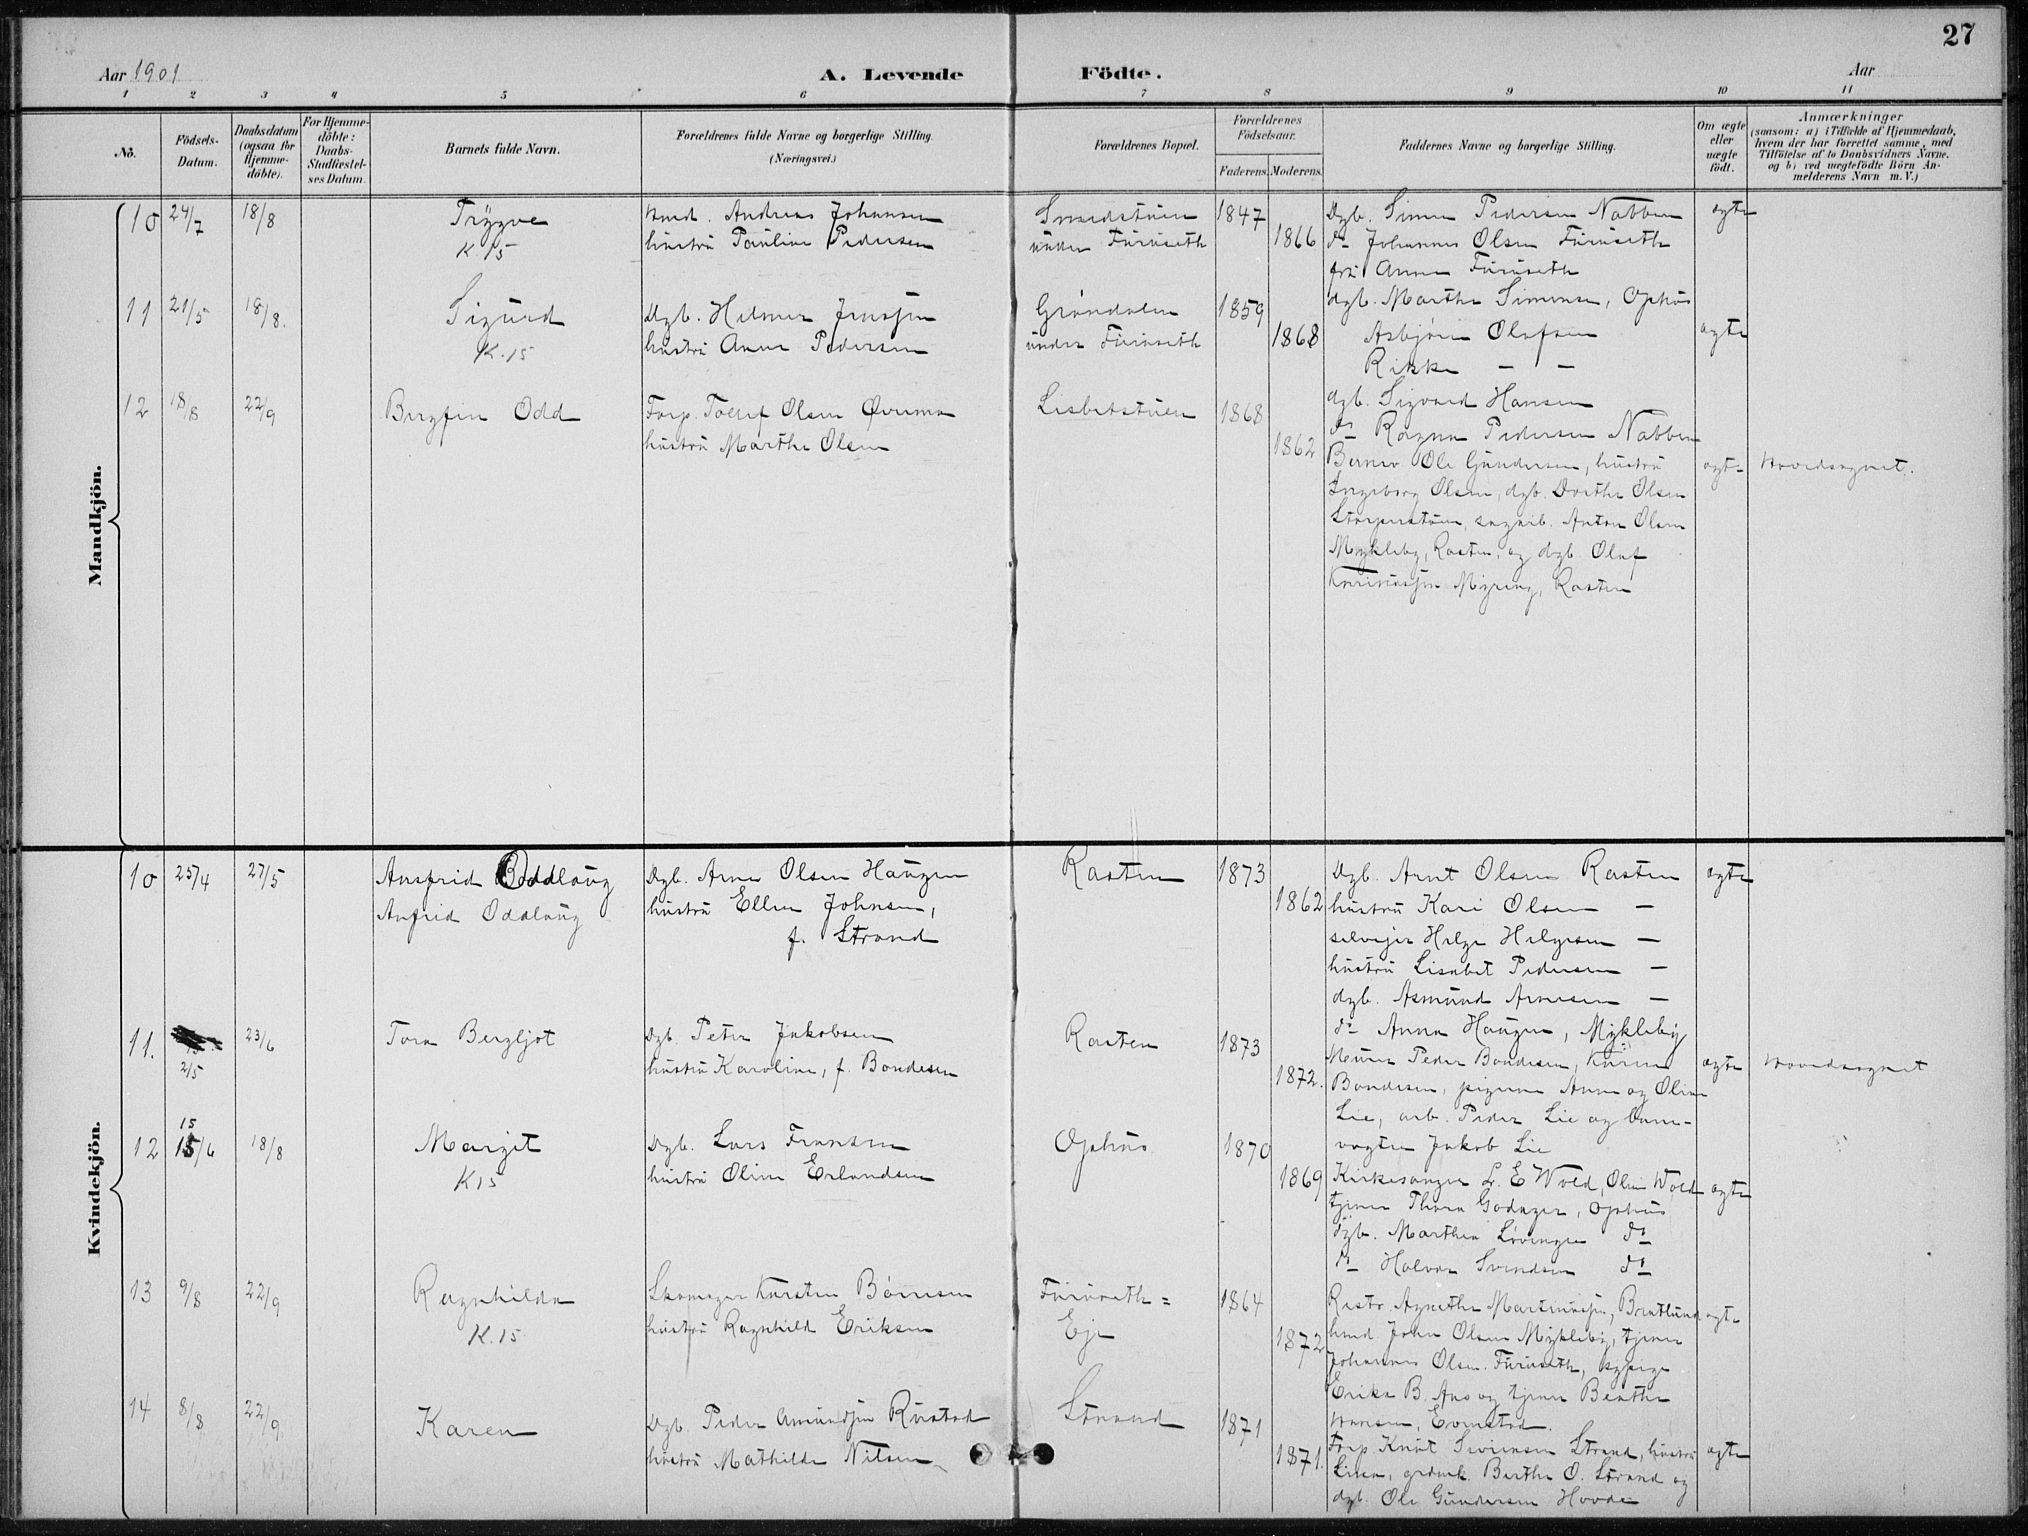 27
Aar 1901
A. Levende Födte.
Aar
1 2 3 4 5 6 7 8 9 10 11
No.
Födsels-Datum.
Daabsdatum (ogsaa for Hjemme-döbte).
For Hjemme-döbte: Daabs-Stadfæstel-ses Datum.
Barnets fulde Navn.
Forældrenes fulde Navne og borgerlige Stilling.
(Næringsvei.)
Forældrenes Bopæl.
Forældrenes Födselsaar.
Faderens. Moderens.
Faddernes Navne og borgerlige Stilling.
Om ægte eller uægte födt.
Anmærkninger
(saasom: a) i Tilfælde af Hjemmedaab, hvem der har forrettet samme, med Tilföielse af to Daabsvidners Navne, og b) ved uægtefödte Börn An-melderens Navn m. V.)
Mandkjön.
10 24/7 18/8 Trygve
K. 15
Andreas Johansen
hustru Pauline Pedersen
Smedstuen
under Furuseth
1847 1866
Dgb. Simen Pedersen Nabben
do Johannes Olsen Furuseth
fru Anne Furuseth
dgb. Marthe Simensen, Ophus
ægte
11 21/5 18/8. Sigurd
K. 15
Dgb. Hilmer Jensen
hustru Anne Pedersen
Grøndalen
under Furuseth
1859 1868
Asbjørn Olafsen
Rikke — —
dgb. Sigvard Hansen
do Ragna Pedersen Nabben
ægte
12 18/8 22/9 Bergfin Odd
Forp. Tollef Olsen Øverm
hustru Marthe Olsen
Lisbetstuen
1868 1862
Ole Gundersen, hustru
Ingeborg Olsen, dgb. Dorthe Olsen
Anton Olsen
Mykleby, Rasten, og dgb. Olaf
Myreng, Rasten
ægte
Hovedsognet.
Kvindekjön.
10 25/4 27/5 Ansfrid Oddlaug
Anfrid Oddlaug
Dgb. Arne Olsen Haugen
hustru Ellen Johnsen,
f. Strand
Rasten
1873 1862
Dgb. Arnt Olsen Rasten
hustru Kari Olsen —
selveier Helge Helgesen —
hustru Lisabet Pedersen —
dgb. Asmund Arnesen —
do Anna Haugen, Mykleby
ægte
11. 2/5 23/6 Tora Bergljot
Dgb. Peter Jakobsen
hustru Karoline, f. Bondesen
Rasten
1873 1872.
Murer Peder Bondesen, Karen
Bondesen, pigerne Anne og Oline
Lie, arb. Peder Lie og bane-
vogter Jakob Lie
ægte
Hovedsognet
12 15 15/6 18/8 Margit
K 15
Dgb. Lars Fransen
hustru Oline Erlandsen
Ophus
1870 1869
Kirkesanger L. E Wold, Oline Wold
tjener Thora Godager, Ophus
dgb. Marthea Løvengen do
do Halvor Svendsen do
ægte
13 9/8 22/9 Ragnhilda
K. 15
Skomager Karsten Børresen
hustru Ragnhild Eriksen
Furuseth =
Eje
1864 1872
Agnethe Martinusen, Brentlund
John Olsen Mykleby, tjener
Johannes Olsen Furuseth, sypige
Erika B. Aas og tjener Berthe
Hansen, Evenstad.
ægte
14 8/8 22/9 Karen
Dgb. Peder Amundsen Rustad
hustru Mathilde Nilsen
Strand
1871 1871.
Forp. Knut Sørensen Strand, hustru
Lina, grdmk. Berthe O. Strand og
dgb. Ole Gundersen Hovde
ægte